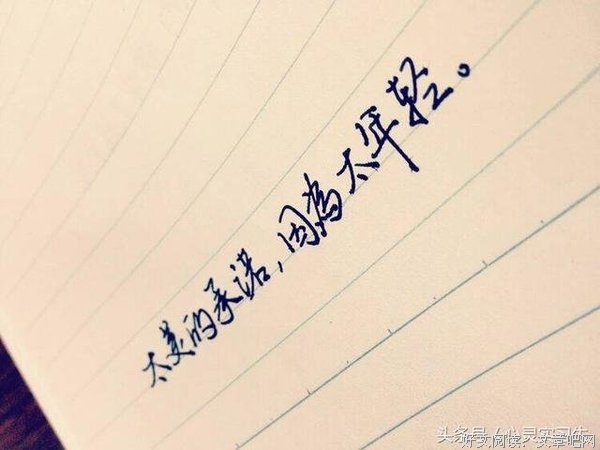 太美的承诺,因为太年轻。
头条号/心灵实习生
好文阅读:文章吧网